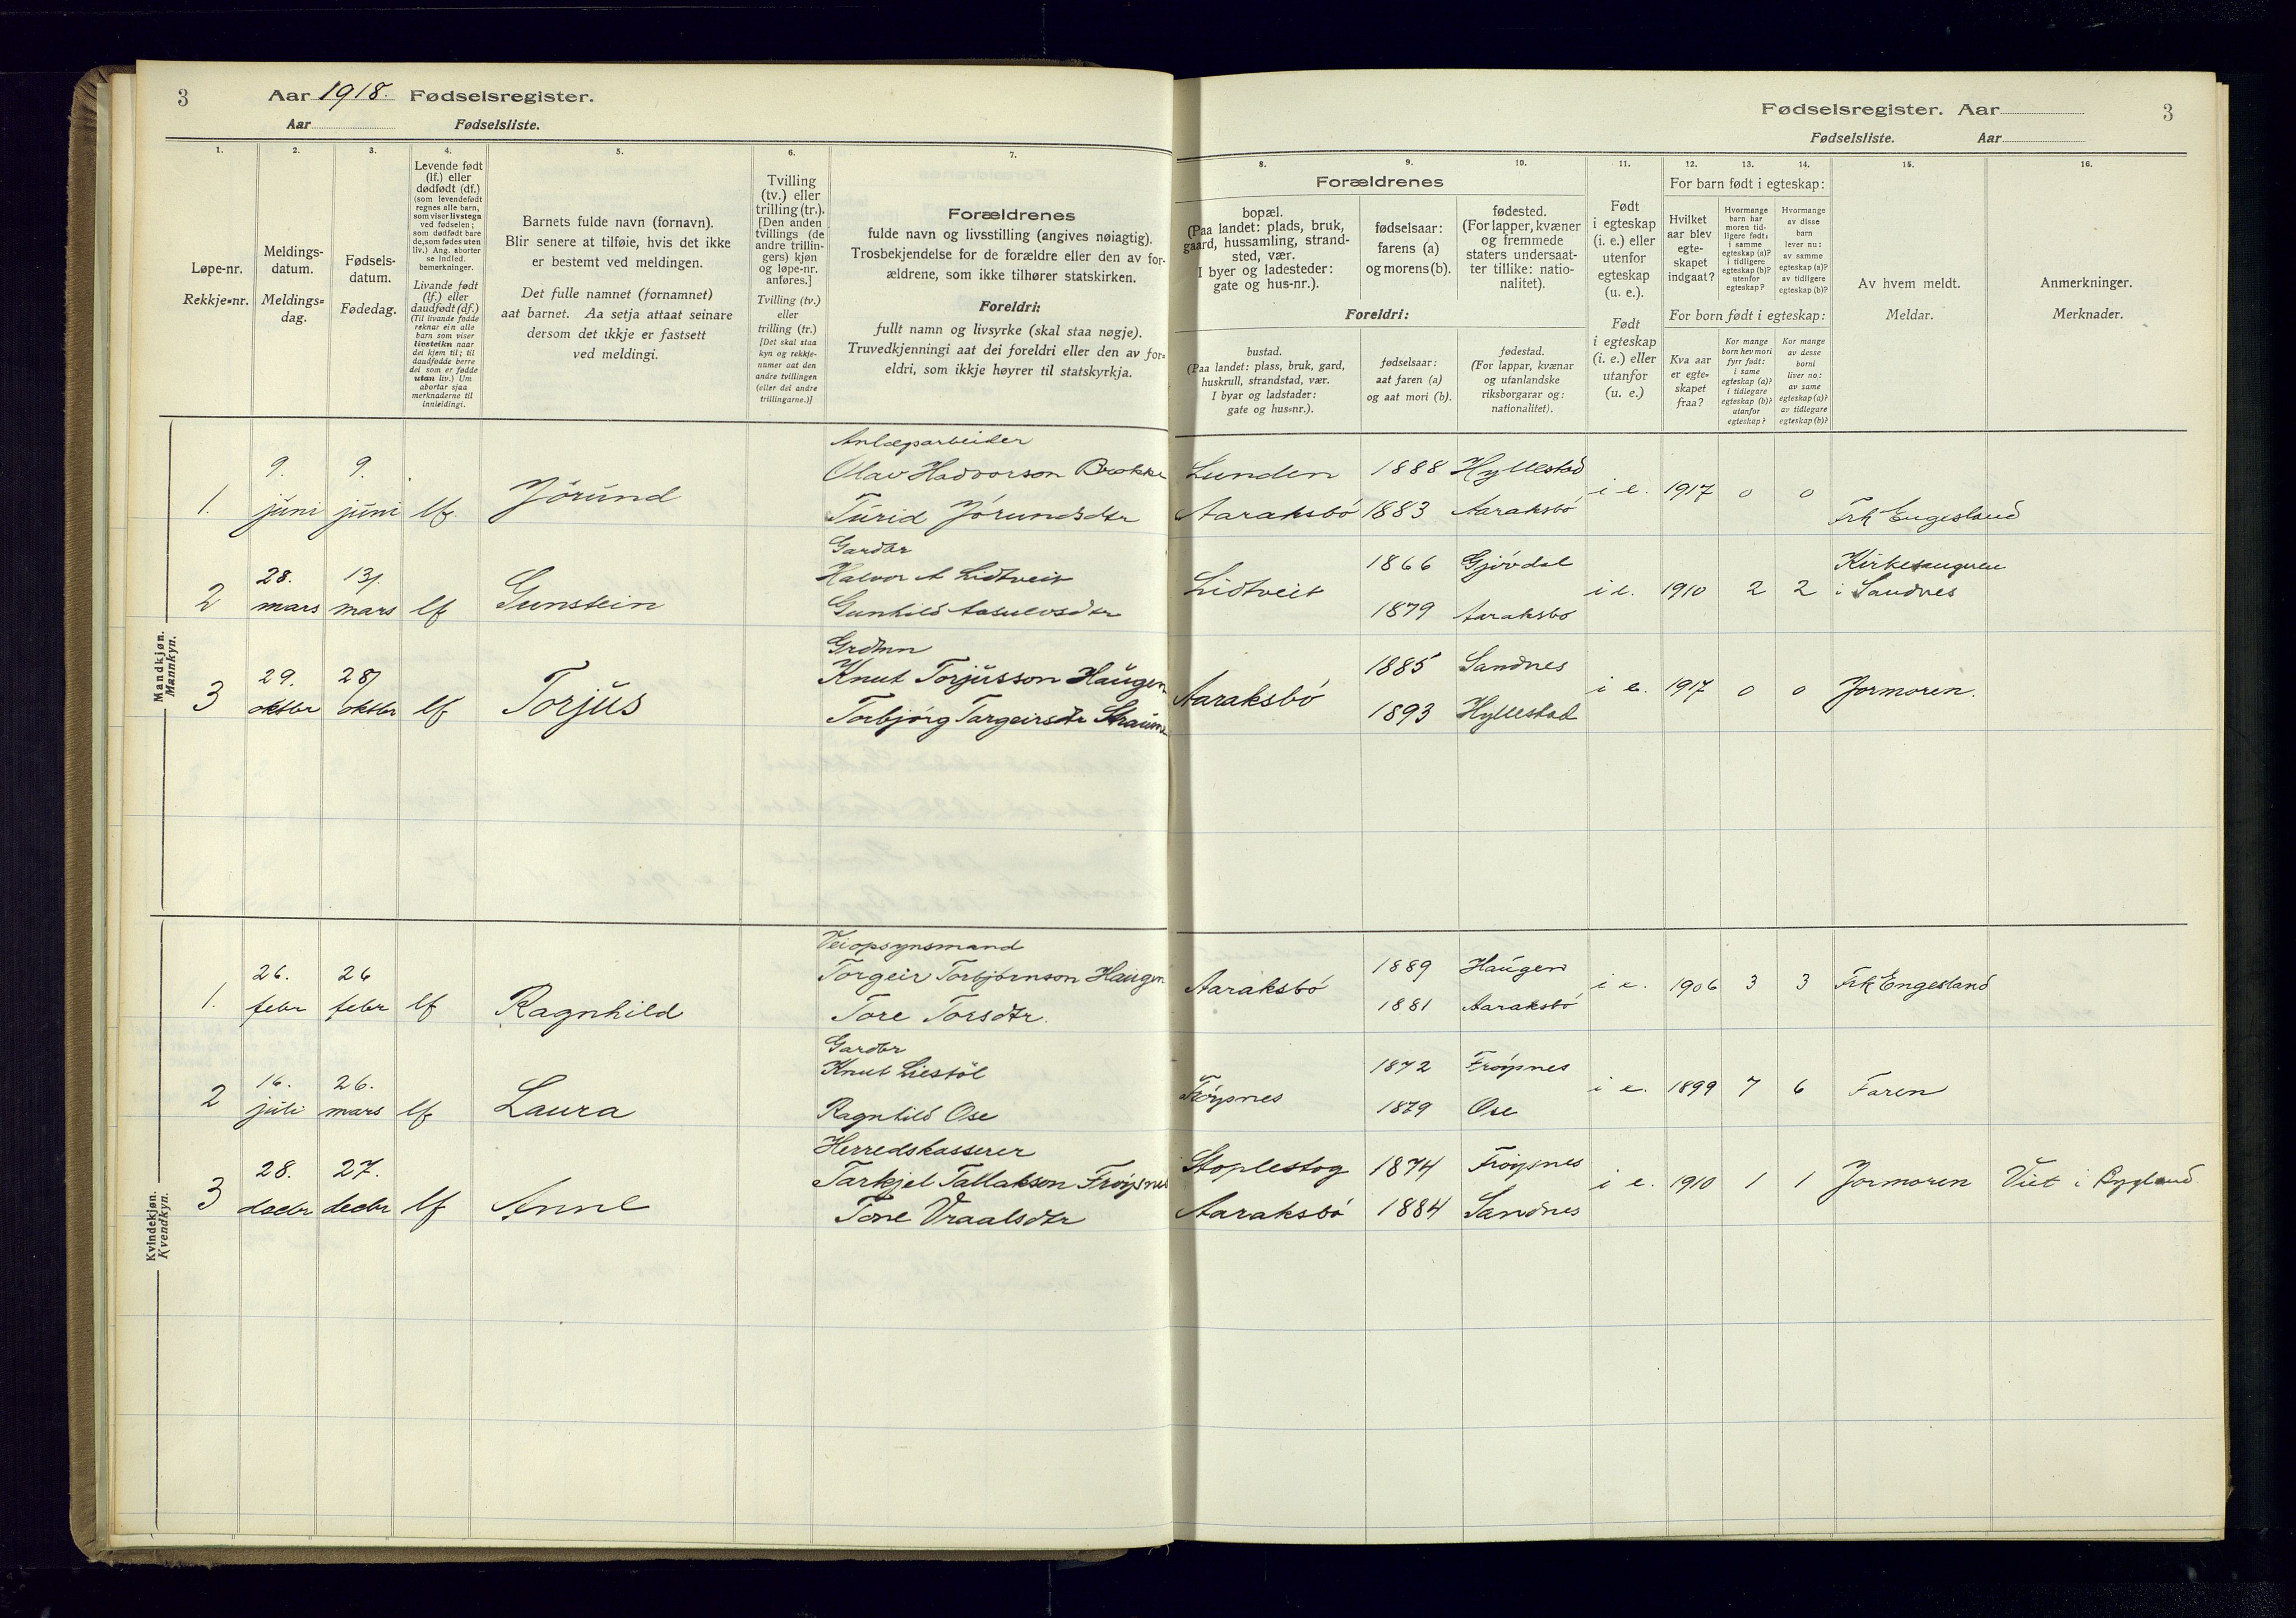 3
Aar 1918. Fødselsregister.
Aar Fødselsliste.
Fødselsregister. Aar
3
Fødselsliste. Aar
1.
2.
3.
4.
5.
6.
7.
8.
9.
10.
11.
12.
13.
14.
15.
16.
Løpe-nr.
Rekkje-nr.
Meldings-
datum.
Meldings-
dag.
Fødsels-
datum.
Fødedag.
Levende født
(lf.) eller
dødfødt (df.)
(som levendefødt
regnes alle barn,
som viser livstegn
ved fødselen;
som dødfødt bare
de, som fødes uten
liv.) Ang. aborter
se indled.
bemerkninger.
Livande født
(lf.) eller
daudfødt (df.)
(Til livande fødde
reknar ein alle
barn som viser
livsteikn naar
dei kjem til; til
daudfødde berre
dei som er fødde
utan liv.) Um
abortar sjaa
merknaderne til
innleidingi.
Barnets fulde navn (fornavn).
Blir senere at tilføie, hvis det ikke
er bestemt ved meldingen.
Det fulle namnet (fornamnet)
aat barnet. Aa setja attaat seinare
dersom det ikkje er fastsett
ved meldingi.
Tvilling
(tv.) eller
trilling (tr.).
[Den anden
tvillings (de
andre trillin-
gers) kjøn
og løpe-nr.
anføres.]
Tvilling (tv.)
eller
trilling (tr.)
[Det skal staa
kyn og rekkje-
numer aat den
andre tvillingen
(eller dei andre
trillingarne.)]
Forældrenes
fulde navn og livsstilling (angives nøiagtig).
Trosbekjendelse for de forældre eller den av for-
ældrene, som ikke tilhører statskirken.
Foreldri:
fullt namn og livsyrke (skal staa nøgje).
Truvedkjenningi aat dei foreldri eller den av for-
eldri, som ikkje høyrer til statskyrkja.
Forældrenes
bopæl.
(Paa landet: plads, bruk,
gaard, hussamling, strand-
sted, vær.
I byer og ladesteder:
gate og hus-nr.).
fødselsaar:
farens (a)
og morens (b).
fødested.
(For lapper, kvæner
og fremmede
staters undersaat-
ter tillike: natio-
nalitet).
Foreldri:
bustad.
(Paa landet: plass, bruk, gard,
huskrull, strandstad, vær.
I byar og ladstader:
gate og hus-nr.).
fødselsaar:
aat faren (a)
og aat mori (b).
fødestad.
(For lappar, kvænar
og utanlandske
riksborgarar og:
nationalitet).
Født
i egteskap
(i. e.) eller
utenfor
egteskap
(u. e.).
Født
i egteskap
(i. e.) eller
utanfor
(u. e.)
For barn født i egteskap:
Hvilket
aar blev
egte-
skapet
indgaat?
Hvormange
barn har
moren tid-
ligere født:
i samme
egteskap (a)?
i tidligere
egteskap (b)?
utenfor
egteskap?
Hvormange
av disse
barn
lever nu:
av samme
egteskap (a)?
av tidligere
egteskap (b)?
For born født i egteskap:
Kva aar
er egte-
skapet
fraa?
Kor mange
born hev mori
fyrr født:
i same
egteskap (a)?
i tidlegare
egteskap (b)?
utanfor
egteskap?
Kor mange
av desse
borni
liver no:
av same
egteskap (a)?
av tidlegare
egteskap (b)?
Av hvem meldt.
Meldar.
Anmerkninger.
Merknader.
Mandkjøn.
Mannkyn.
Anlægsarbeider
1. 9. juni 9. juni lf. Jörund Olav Hadvorson Brokke Lunden 1888 Hyllestad i e. 1917 0 0 Frk Engesland
Turid Jörundsdtr Aaraksbö 1883 Aaraksbö
Gardbr
2 28. mars 13/ mars lf Gunstein Halvor A Lidtveit Lidtveit 1866 Gjövdal i e. 1910 2 2 Kirkesangeren i Sandnes
Gunhild Aasulvsdtr 1879 Aaraksbö
Grdmn
3 29. oktbr 28/ oktbr lf Torjus Knut Torjusson Haugen Aaraksbö 1885 Sandnes i e. 1917 0 0 Jormoren.
Torbjörg Targeirsdtr Straume 1893 Hyllestad
Kvindekjøn.
Kvendkyn.
Veiopsynsmand
1. 26. febr 26 febr lf Ragnhild Torgeir Torbjörnson Haugen Aaraksbö 1889 Haugen i e. 1906 3 3 Frk Engesland
Tore Torsdtr. 1881 Aaraksbö
Gardbr
2 16. juli 26. mars lf Laura Knut Liestöl Fröysnes 1872 Fröysnes i e. 1899 7 6 Faren
Ragnhild Ose 1879 Ose
Herredskasserer
3 28. decbr 27. decbr lf Anne Tarkjel Tallakson Fröysnes Stoplestog 1874 Fröysnes i e. 1910 1 1 Jormoren Viet i Bygland
Tone Vraalsdtr Aaraksbö 1884 Sandnes